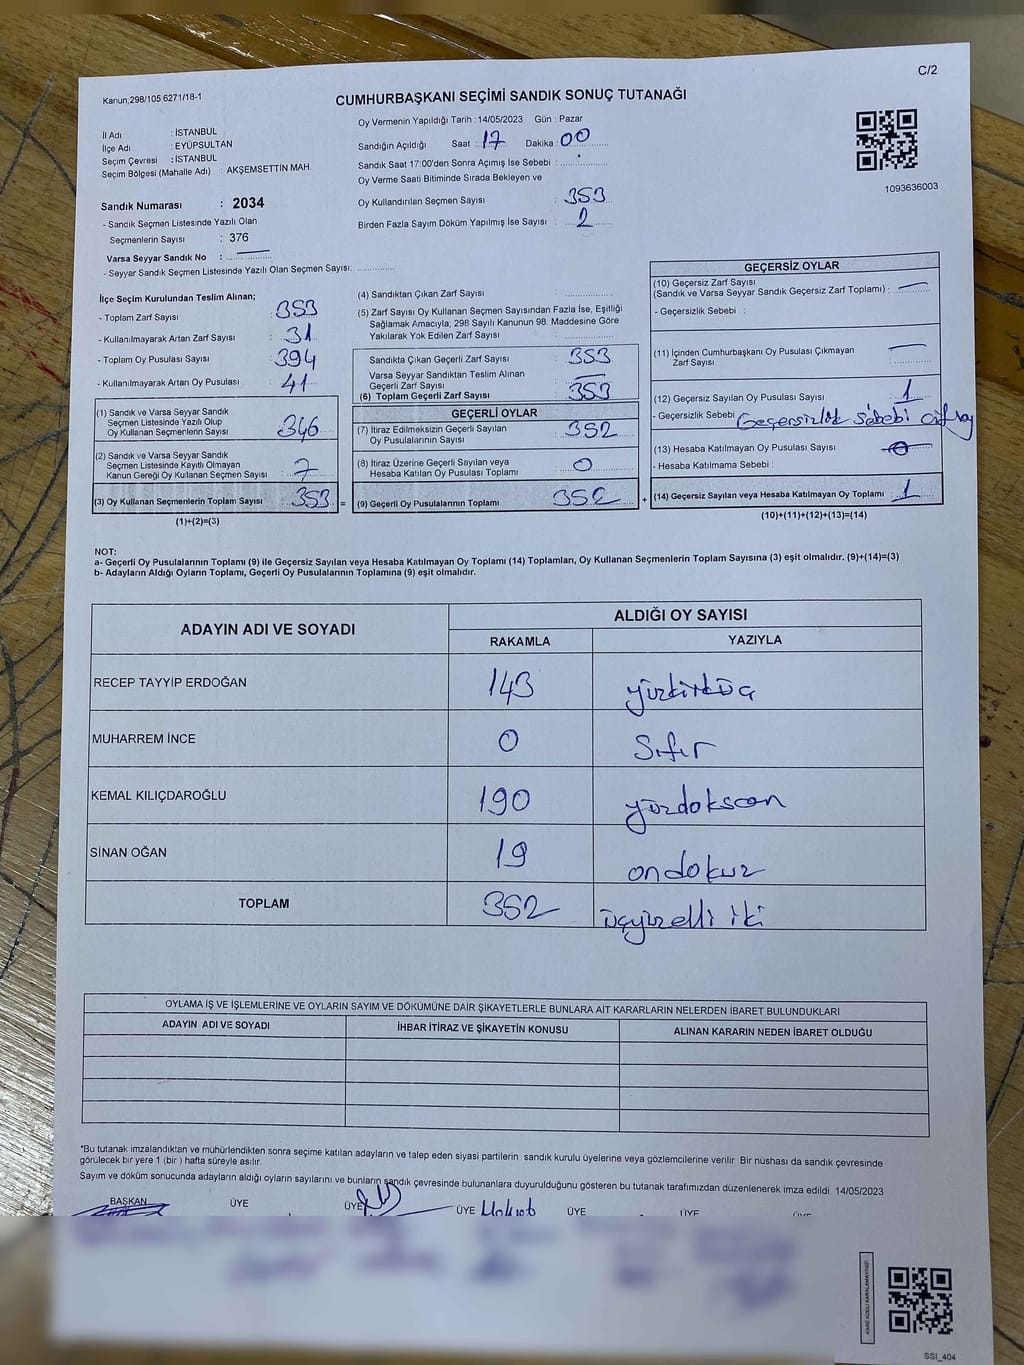 C/2
Kanun;298/105 6271/18-1
CUMHURBAŞKANI SEÇİMİ SANDIK SONUÇ TUTANAĞI
İl Adı : İSTANBUL
İlçe Adı : EYÜPSULTAN
Seçim Çevresi : İSTANBUL
Seçim Bölgesi (Mahalle Adı) : AKŞEMSETTİN MAH.
Oy Vermenin Yapıldığı Tarih : 14/05/2023 Gün : Pazar
Sandığın Açıldığı Saat : 17 Dakika : 00
Sandık Saat 17:00'den Sonra Açımış İse Sebebi :
Oy Verme Saati Bitiminde Sırada Bekleyen ve
Oy Kullandırılan Seçmen Sayısı : 353
Birden Fazla Sayım Döküm Yapılmış İse Sayısı : 2
1093636003
Sandık Numarası : 2034
- Sandık Seçmen Listesinde Yazılı Olan
Seçmenlerin Sayısı : 376
Varsa Seyyar Sandık No :
- Seyyar Sandık Seçmen Listesinde Yazılı Olan Seçmen Sayısı:
İlçe Seçim Kurulundan Teslim Alınan;
- Toplam Zarf Sayısı : 353
- Kullanılmayarak Artan Zarf Sayısı : 31
- Toplam Oy Pusulası Sayısı : 394
- Kullanılmayarak Artan Oy Pusulası : 41
(1) Sandık ve Varsa Seyyar Sandık
Seçmen Listesinde Yazılı Olup
Oy Kullanan Seçmenlerin Sayısı : 346
(2) Sandık ve Varsa Seyyar Sandık
Seçmen Listesinde Kayıtlı Olmayan
Kanun Gereği Oy Kullanan Seçmen Sayısı : 7
(3) Oy Kullanan Seçmenlerin Toplam Sayısı : 353 =
(1)+(2)=(3)
(4) Sandıktan Çıkan Zarf Sayısı :
(5) Zarf Sayısı Oy Kullanan Seçmen Sayısından Fazla İse, Eşitliği
Sağlamak Amacıyla; 298 Sayılı Kanunun 98 Maddesine Göre
Yakılarak Yok Edilen Zarf Sayısı :
Sandıkta Çıkan Geçerli Zarf Sayısı : 353
Varsa Seyyar Sandıktan Teslim Alınan
Geçerli Zarf Sayısı :
(6) Toplam Geçerli Zarf Sayısı : 353
GEÇERLİ OYLAR
(7) İtiraz Edilmeksizin Geçerli Sayılan
Oy Pusulalarının Sayısı : 352
(8) İtiraz Üzerine Geçerli Sayılan veya
Hesaba Katılan Oy Pusulası Toplamı : 0
(9) Geçerli Oy Pusulalarının Toplamı : 352 +
GEÇERSİZ OYLAR
(10) Geçersiz Zarf Sayısı
(Sandık ve Varsa Seyyar Sandık Geçersiz Zarf Toplamı) :
- Geçersizlik Sebebi :
(11) İçinden Cumhurbaşkanı Oy Pusulası Çıkmayan
Zarf Sayısı :
(12) Geçersiz Sayılan Oy Pusulası Sayısı : 1
- Geçersizlik Sebebi Geçersizlik sebebi çift oy
(13) Hesaba Katılmayan Oy Pusulası Sayısı : 0
- Hesaba Katılmama Sebebi :
(14) Geçersiz Sayılan veya Hesaba Katılmayan Oy Toplamı : 1
(10)+(11)+(12)+(13)=(14)
NOT:
a- Geçerli Oy Pusulalarının Toplamı (9) ile Geçersiz Sayılan veya Hesaba Katılmayan Oy Toplamı (14) Toplamları, Oy Kullanan Seçmenlerin Toplam Sayısına (3) eşit olmalıdır. (9)+(14)=(3)
b- Adayların Aldığı Oyların Toplamı, Geçerli Oy Pusulalarının Toplamına (9) eşit olmalıdır.
ADAYIN ADI VE SOYADI ALDIĞI OY SAYISI
RAKAMLA YAZIYLA
RECEP TAYYİP ERDOĞAN 143 yüzkırküç
MUHARREM İNCE 0 Sıfır
KEMAL KILIÇDAROĞLU 190 yüzdoksan
SİNAN OĞAN 19 ondokuz
TOPLAM 352 üçyüzelli iki
OYLAMA İŞ VE İŞLEMLERİNE VE OYLARIN SAYIM VE DÖKÜMÜNE DAİR ŞİKAYETLERLE BUNLARA AİT KARARLARIN NELERDEN İBARET BULUNDUKLARI
ADAYIN ADI VE SOYADI İHBAR İTİRAZ VE ŞİKAYETİN KONUSU ALINAN KARARIN NEDEN İBARET OLDUĞU
*Bu tutanak imzalandıktan ve mühürlendikten sonra seçime katılan adayların ve talep eden siyasi partilerin sandık kurulu üyelerine veya gözlemcilerine verilir. Bir nüshası da sandık çevresinde
görülecek bir yere 1 (bir) hafta süreyle asılır.
Sayım ve döküm sonucunda adayların aldığı oyların sayılarını ve bunların sandık çevresinde bulunanlara duyurulduğunu gösteren bu tutanak tarafımızdan düzenlenerek imza edildi. 14/05/2023
BAŞKAN ÜYE ÜYE ÜYE ÜYE ÜYE
SSI_404